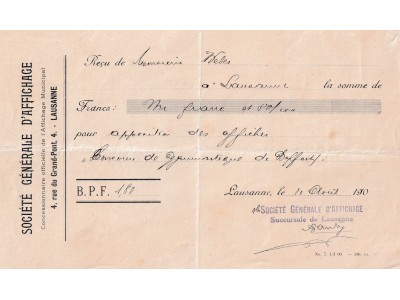 SOCIÉTÉ GÉNÉRALE D'AFFICHAGE
Concessionnaire officielle de l'Affichage Municipal
4, rue du Grand-Pont, 4. LAUSANNE
Reçu de Weber
à Lausanne la somme de
Francs: Un franc et 80/100
pour apposition des affiches
Concours de Gymnastique de
B.P.F. 1,80
Lausanne, le Août 190
SOCIÉTÉ GÉNÉRALE D'AFFICHAGE
Succursale de Lausanne